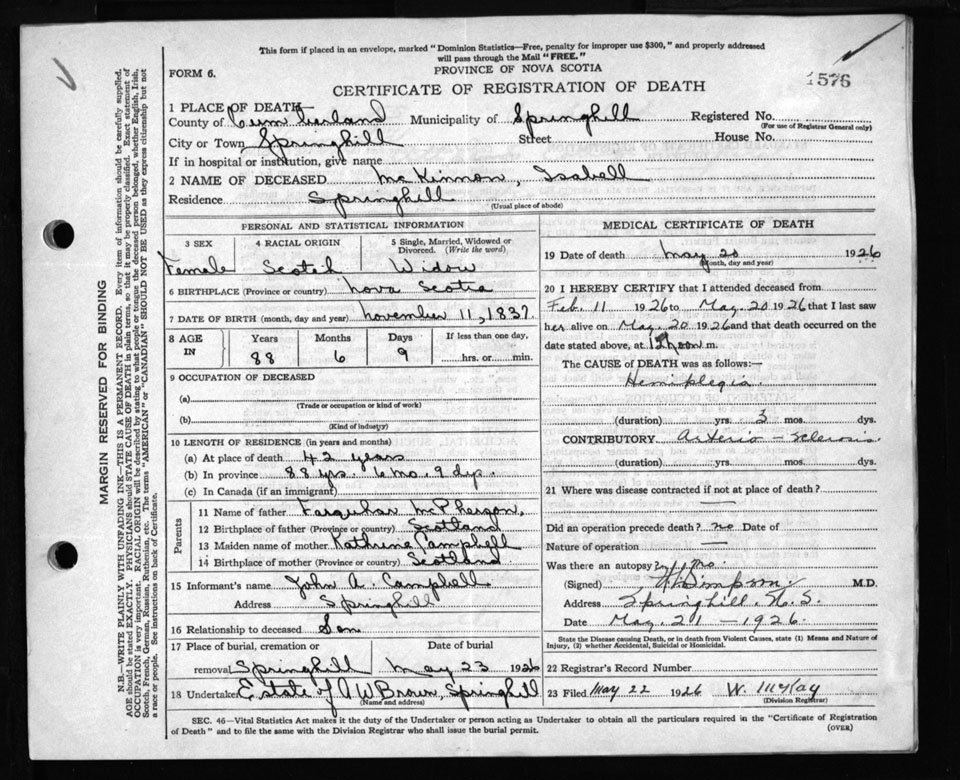 This form if placed in an envelope, marked "Dominion Statistics—Free, penalty for improper use $300," and properly addressed
will pass through the Mail "FREE."
PROVINCE OF NOVA SCOTIA
FORM 6.
CERTIFICATE OF REGISTRATION OF DEATH
1576
1 PLACE OF DEATH
County of Cumberland Municipality of Springhill Registered No.
(For use of Registrar General only)
City or Town Springhill Street House No.
If in hospital or institution, give name
2 NAME OF DECEASED McKinnon, Isabell
Residence Springhill
(Usual place of abode)
PERSONAL AND STATISTICAL INFORMATION
3 SEX 4 RACIAL ORIGIN 5 Single, Married, Widowed or Divorced. (Write the word)
Female Scotch Widow
6 BIRTHPLACE (Province or country) Nova Scotia
7 DATE OF BIRTH (month, day and year) November 11, 1837
8 AGE IN Years Months Days If less than one day,
88 6 9 hrs. or min.
9 OCCUPATION OF DECEASED
(a)
(Trade or occupation or kind of work)
(b)
(Kind of industry)
10 LENGTH OF RESIDENCE (in years and months)
(a) At place of death 42 years
(b) In province 88 yrs. 6 mo. 9 dys.
(c) In Canada (if an immigrant)
Parents
11 Name of father Farquhar McPherson
12 Birthplace of father (Province or country) Scotland
13 Maiden name of mother Kathrine Campbell
14 Birthplace of mother (Province or country) Scotland
15 Informant's name John A. Campbell
Address Springhill
16 Relationship to deceased Son
17 Place of burial, cremation or Date of burial
removal Springhill May 23 1926
18 Undertaker Estate of A W Brown, Springhill
(Name and address)
MEDICAL CERTIFICATE OF DEATH
19 Date of death May 20 1926
(Month, day and year)
20 I HEREBY CERTIFY that I attended deceased from
Feb. 11 1926 to May. 20 1926 that I last saw
her alive on May. 20 1926 and that death occurred on
date stated above, at 12 noon m.
The CAUSE of DEATH was as follows:—
Hemiplegia.
(duration) yrs. 3 mos. dys.
CONTRIBUTORY Arterio-Sclerosis
(duration) yrs. mos. dys.
21 Where was disease contracted if not at place of death?
—
Did an operation precede death? no Date of
Nature of operation —
Was there an autopsy? No.
(Signed) Simpson M.D.
Address Springhill, N.S.
Date May. 21 - 1926.
State the Disease causing Death, or in death from Violent Causes, state (1) Means and Nature of
Injury, (2) whether Accidental, Suicidal or Homicidal.
22 Registrar's Record Number
23 Filed May 22 1926 W. McKay
(Division Registrar)
SEC. 46—Vital Statistics Act makes it the duty of the Undertaker or person acting as Undertaker to obtain all the particulars required in the "Certificate of Registration
of Death" and to file the same with the Division Registrar who shall issue the burial permit.
(OVER)
MARGIN RESERVED FOR BINDING
N.B.—WRITE PLAINLY WITH UNFADING INK—THIS IS A PERMANENT RECORD. Every item of information should be carefully supplied.
AGE should be stated EXACTLY. PHYSICIANS should STATE CAUSE OF DEATH in plain terms, so that it may be properly classified. Exact statement of
OCCUPATION is very important. RACIAL ORIGIN will be described by stating to what people or tongue the deceased person belonged, whether English, Irish,
Scotch, French, German, Russian, Ruthenian, etc. The terms "AMERICAN" or "CANADIAN" SHOULD NOT BE USED as they express citizenship but not
a race or people. See instructions on back of Certificate.